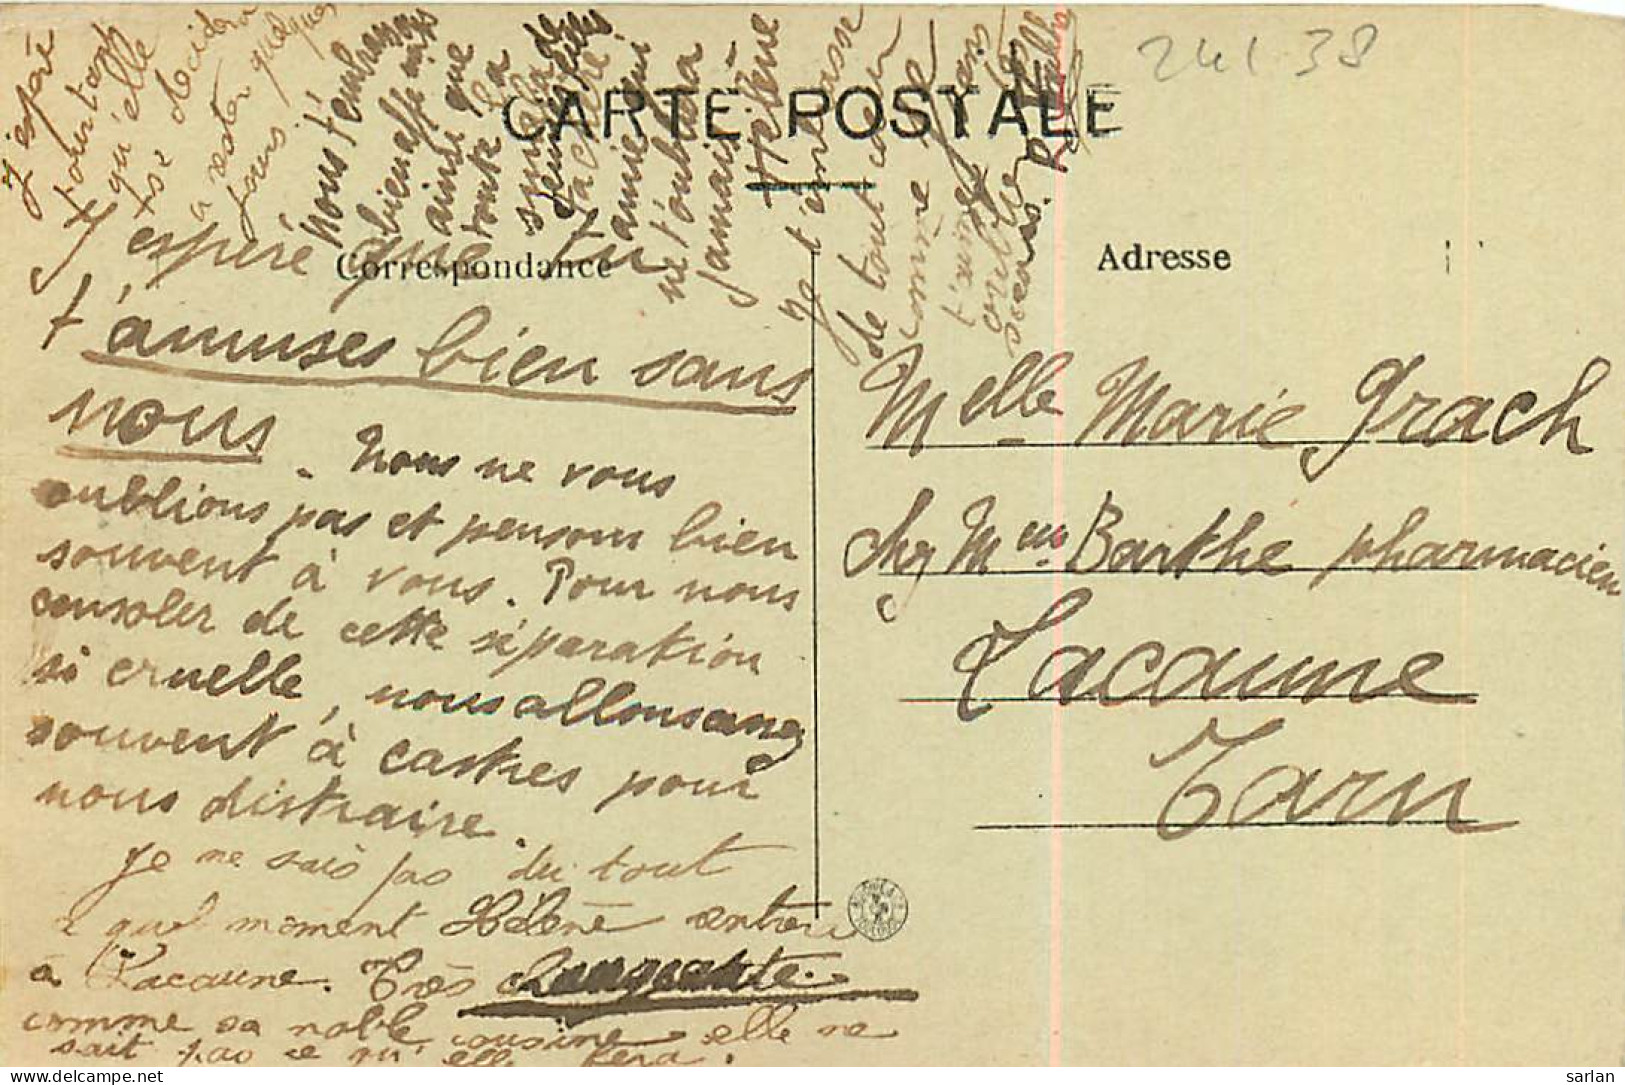 CARTE POSTALE
24138
Correspondance
Adresse
J'espère que tu
t'amuses bien sans
nous. Nous ne vous
oublions pas et pensons bien
souvent à vous. Pour nous
consoler de cette séparation
si cruelle, nous allons assez
souvent à Castres pour
nous distraire.
Je ne sais pas du tout
à quel moment Hélène entrera
à Lacaune. Très changeante
comme sa noble cousine elle ne
sait pas ce qu'elle fera.
J'espère
pourtant
qu'elle
se décidera
à rester quelques
jours.
Nous t'embrassons
bien affe
ainsi que
toute la
Ta
amie qui
ne t'oubliera
jamais
Hélène
Je t'embrasse
de tout cœur
comme je
t'aime
Melle Marie Grach
chez Mr Barthe pharmacien
Lacaune
Tarn
sarlan